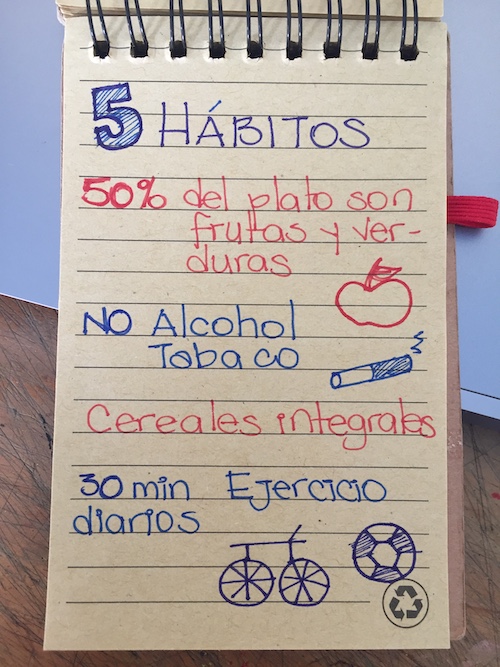 5 HÁBITOS
50% del plato son
frutas y ver-
duras
NO Alcohol
Tobaco
Cereales integrales
30 min Ejercicio
diarios